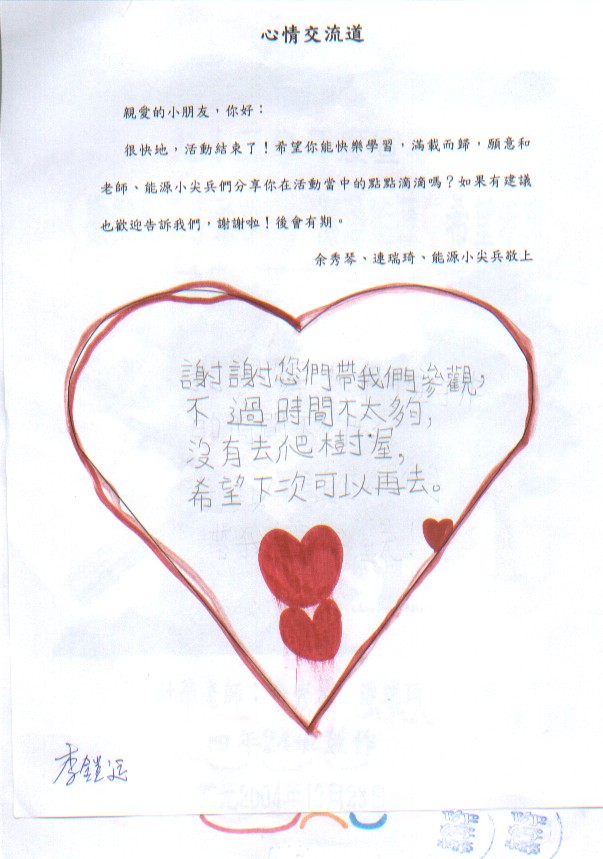 心情交流道
親愛的小朋友，你好：
很快地，活動結束了！希望你能快樂學習，滿載而歸，願意和
老師、能源小尖兵們分享你在活動當中的點點滴滴嗎？如果有建議
也歡迎告訴我們，謝謝啦！後會有期。
余秀琴、連瑞琦、能源小尖兵敬上
謝謝您們帶我們參觀，
不過時間不太夠，
沒有去爬樹屋，
希望下次可以再去。